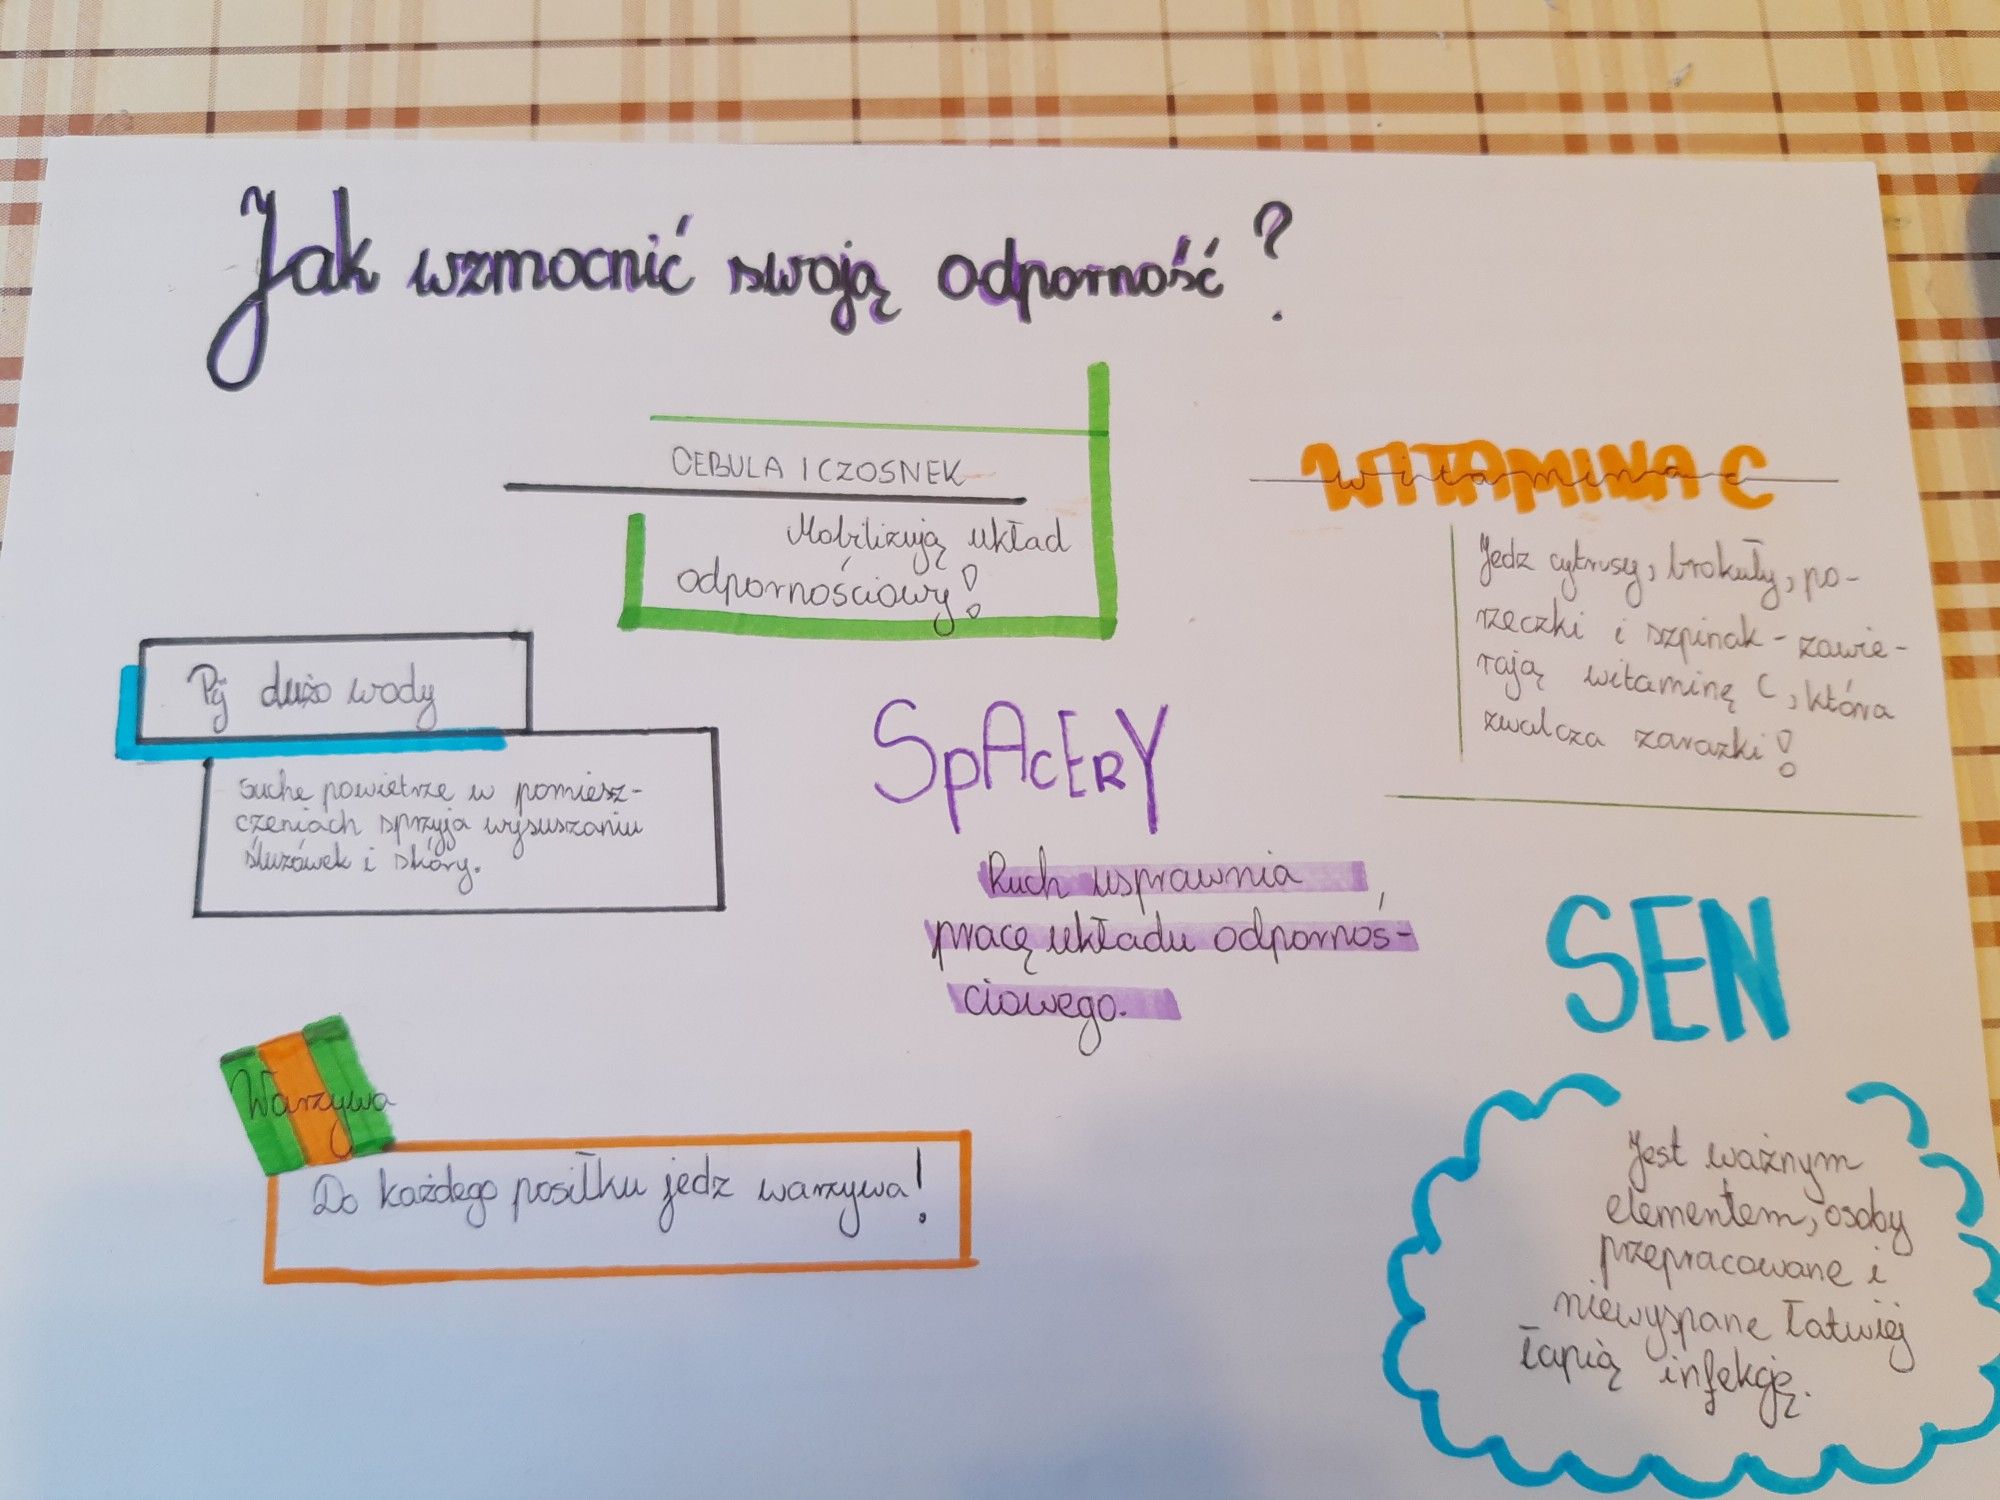 Jak wzmocnić swoją odporność?
CEBULA I CZOSNEK
Mobilizują układ
odpornościowy!
WITAMINA C
witamina c
Jedz cytrusy, brokuły, po-
rzeczki i szpinak - zawie-
rają witaminę C, która
zwalcza zarazki!
Pij dużo wody
suche powietrze w pomiesz-
czeniach sprzyja wysuszaniu
śluzówek i skóry.
SpAcERY
Ruch usprawnia
pracę układu odpornoś-
ciowego.
SEN
Jest ważnym
elementem, osoby
przepracowane i
niewyspane łatwiej
łapią infekcję.
Warzywa
Do każdego posiłku jedz warzywa!